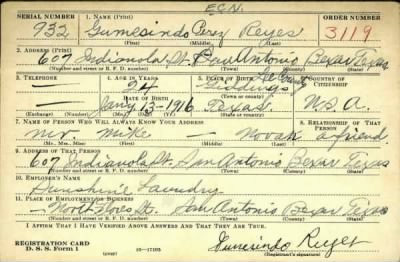 E.C.N.
SERIAL NUMBER 1. NAME (Print) ORDER NUMBER
932 Gumesindo Cruz Reyes 3119
(First) (Middle) (Last)
2. ADDRESS (Print)
607 Indianola St. San Antonio Bexar Texas
(Number and street or R. F. D. number) (Town) (County) (State)
3. TELEPHONE 4. AGE IN YEARS 5. PLACE OF BIRTH 6. COUNTRY OF CITIZENSHIP
— 24 Giddings
DATE OF BIRTH (Town or county)
— Jany 13-1916 Texas U.S.A.
(Exchange) (Number) (Mo.) (Day) (Yr.) (State or country)
7. NAME OF PERSON WHO WILL ALWAYS KNOW YOUR ADDRESS 8. RELATIONSHIP OF THAT PERSON
Mr. Mike — Novak a friend
(Mr., Mrs., Miss) (First) (Middle) (Last)
9. ADDRESS OF THAT PERSON
607 Indianola St. San Antonio Bexar Texas
(Number and street or R. F. D. number) (Town) (County) (State)
10. EMPLOYER'S NAME
Sunshine Laundry
11. PLACE OF EMPLOYMENT OR BUSINESS
— North Flores St. San Antonio Bexar Texas
(Number and street or R. F. D. number) (Town) (County) (State)
I AFFIRM THAT I HAVE VERIFIED ABOVE ANSWERS AND THAT THEY ARE TRUE.
REGISTRATION CARD
D. S. S. Form 1 (over) 16-17105 Gumesindo Reyes
(Registrant's signature)